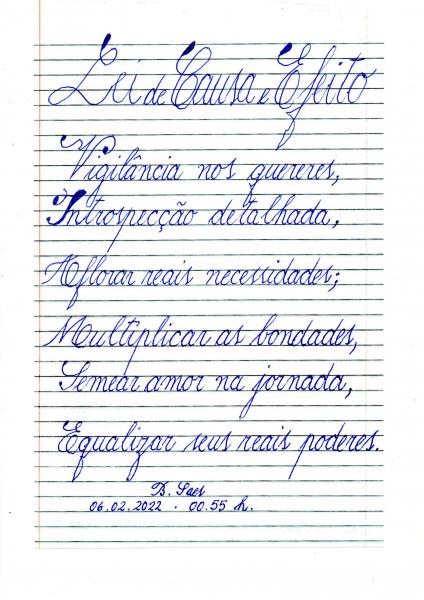 Lei de Causa e Efeito
Vigilância nos quereres,
Introspecção detalhada,
Aflorar reais necessidades;
Multiplicar as bondades,
Semear amor na jornada,
Equalizar seus reais poderes.
B. Saes
06.02.2022 . 00.55 h.